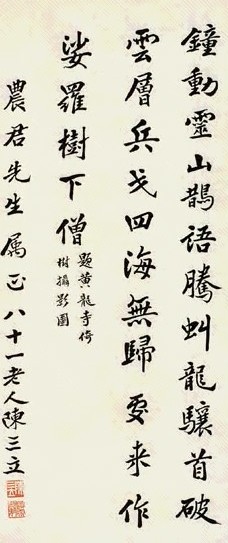 鐘動靈山鵲語騰虯龍驤首破
雲層兵戈四海無歸處要來作
娑羅樹下僧
題黃龍寺倚
樹攝影圖
農君先生屬正八十一老人陳三立